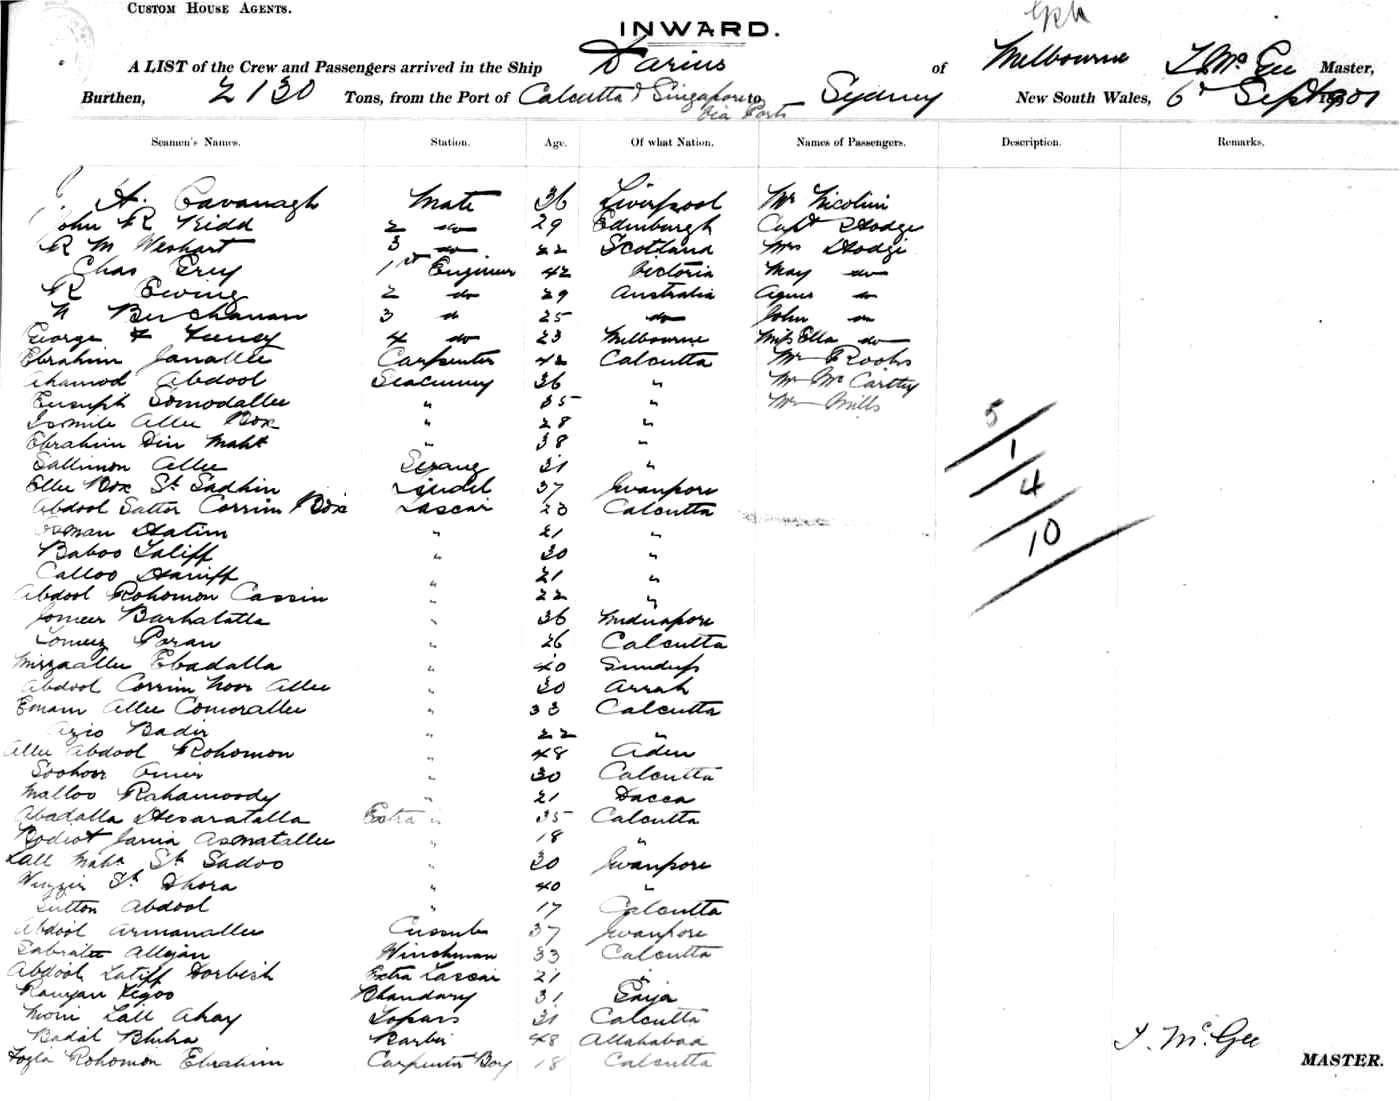 CUSTOM HOUSE AGENTS.
INWARD.
A LIST of the Crew and Passengers arrived in the Ship Darius of Melbourne McGee Master,
Burthen, 2130 Tons, from the Port of Calcutta & Singapore to Sydney New South Wales, 6 Sept 1901
via Ports
Seamen's Names. Station. Age. Of what Nation. Names of Passengers. Description. Remarks.
J. H. Cavanagh Mate 36 Liverpool Mr Nicolini
John R Kidd 2 do 29 Edinburgh Capt Hodge
R M Weshart 3 do 22 Scotland Mrs Hodge
Chas Grey 1st Engineer 42 Victoria May do
R Ewing 2 do 29 Australia Agnes do
N Buchanan 3 do 25 do John do
George F 4 do 23 Melbourne Miss Ella do
Ebrahim Janallee Carpenter 42 Calcutta Mr Rooks
Ahamod Abdool Seacunny 36 " Mr McCarthy
Eusuph Somodallee " 35 " Mr Mills
Ismile Allee Box " 28 "
Ebrahim Din Maht " 38 "
Sallimon Allee Serang 31 "
Ellee Box St Sadhin Tindel 37 Jwanpore
Abdool Sattor Corrim Box Lascar 23 Calcutta
Osman Hatim " 21 "
Baboo Latiff " 30 "
Calloo Haniff " 21 "
Abdool Rohomon Cassin " 22 "
Jomeer Barkatalla " 36 Midnapore
Poran " 26 Calcutta
Mirzaallee Ebadalla " 40 Sundip
Abdool Corrim Noor Allee " 30 Arrah
Emam Allee Comorallee " 33 Calcutta
Azis Badir " 22 "
Allee Abdool Rohomon " 48 Aden
Omir " 30 Calcutta
Malloo Rahamoody " 21 Dacca
Abadalla Hesaratalla Extra " 35 Calcutta
Asmatallee " 18 "
Lall Maht St Sadoo " 30 Jwanpore
Wuzzir St Dhora " 40 "
Sutton Abdool " 17 Calcutta
Abdool Armanallee Cussub 37 Jwanpore
Allejan Winchman 33 Calcutta
Abdool Latiff Dorbesh Extra Lascar 21 "
Bhandary 31 Gaya
Moni Lall Topass 31 Calcutta
Badal Barber 48 Allahabad
Rohomon Ebrahim Carpenter Boy 18 Calcutta
5
1
4
10
J. McGee
MASTER.